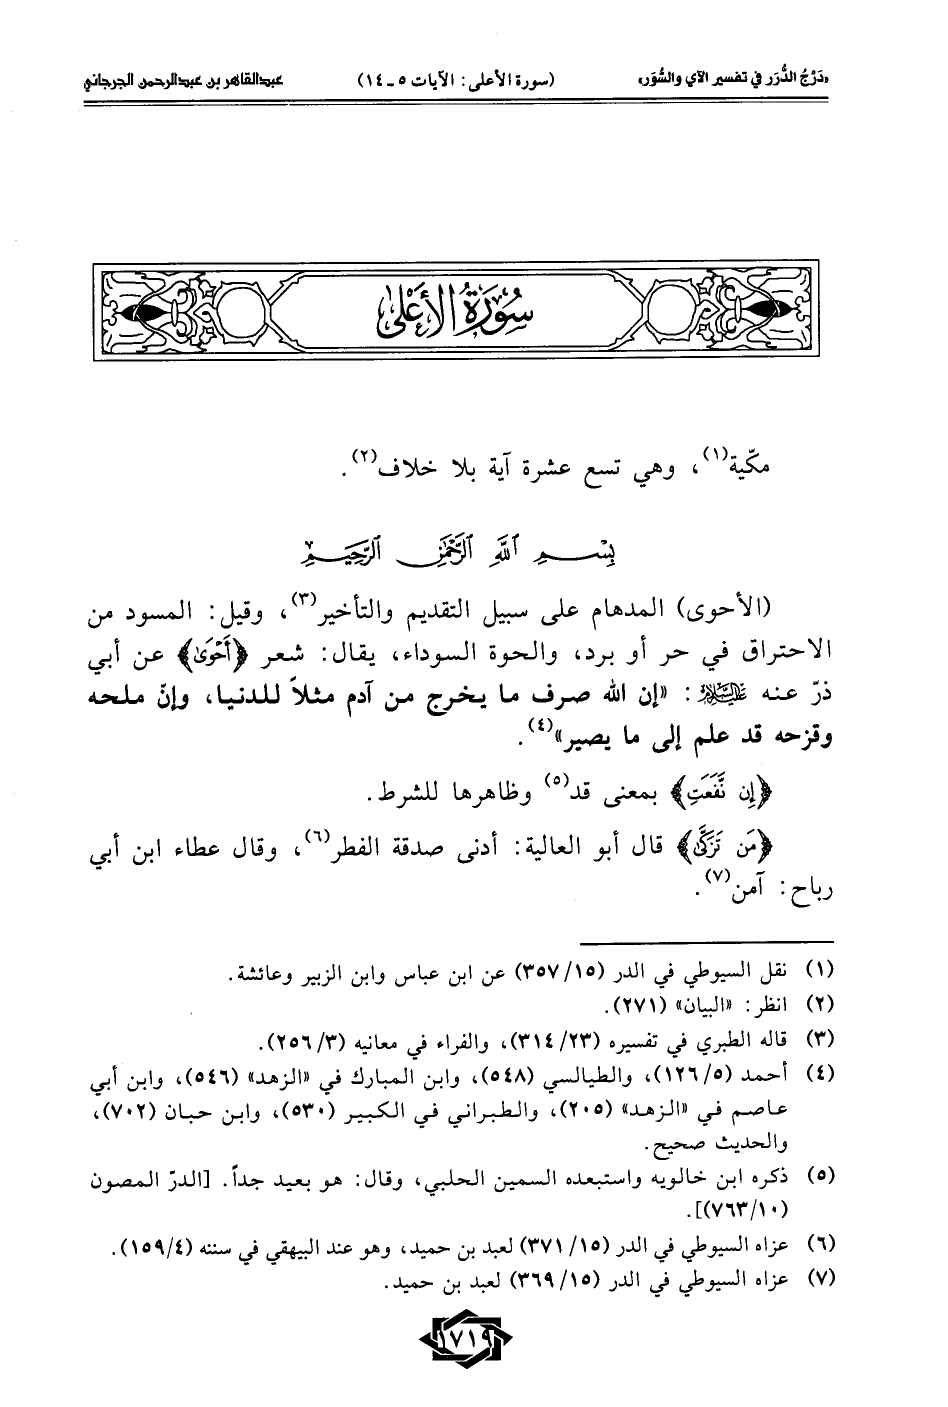 «دَرْجُ الدُّرَر في تفسير الآي والسُّوَر» (سورة الأعلى: الآيات ٥ ـ ١٤) عبدالقاهر بن عبدالرحمن الجرجاني
سُورَةُ الأَعْلى
مكّية(١)، وهي تسع عشرة آية بلا خلاف(٢).
بِسْمِ ٱللَّهِ ٱلرَّحْمَٰنِ ٱلرَّحِيمِ
(الأحوى) المدهام على سبيل التقديم والتأخير(٣)، وقيل: المسود من
الاحتراق في حر أو برد، والحوة السوداء، يقال: شعر ﴿أَحْوَىٰ﴾ عن أبي
ذرّ عنه عليه السلام: «إن الله صرف ما يخرج من آدم مثلاً للدنيا، وإنّ ملحه
وقزحه قد علم إلى ما يصير»(٤).
﴿إِن نَّفَعَتِ﴾ بمعنى قد(٥) وظاهرها للشرط.
﴿مَن تَزَكَّىٰ﴾ قال أبو العالية: أدنى صدقة الفطر(٦)، وقال عطاء ابن أبي
رباح: آمن(٧).
(١) نقل السيوطي في الدر (٣٥٧/١٥) عن ابن عباس وابن الزبير وعائشة.
(٢) انظر: «البيان» (٢٧١).
(٣) قاله الطبري في تفسيره (٣١٤/٢٣)، والفراء في معانيه (٢٥٦/٣).
(٤) أحمد (١٢٦/٥)، والطيالسي (٥٤٨)، وابن المبارك في «الزهد» (٥٤٦)، وابن أبي
عاصم في «الزهد» (٢٠٥)، والطبراني في الكبير (٥٣٠)، وابن حبان (٧٠٢)،
والحديث صحيح.
(٥) ذكره ابن خالويه واستبعده السمين الحلبي، وقال: هو بعيد جداً. [الدرّ المصون
(٧٦٣/١٠)].
(٦) عزاه السيوطي في الدر (٣٧١/١٥) لعبد بن حميد، وهو عند البيهقي في سننه (١٥٩/٤).
(٧) عزاه السيوطي في الدر (٣٦٩/١٥) لعبد بن حميد.
١٧١٩